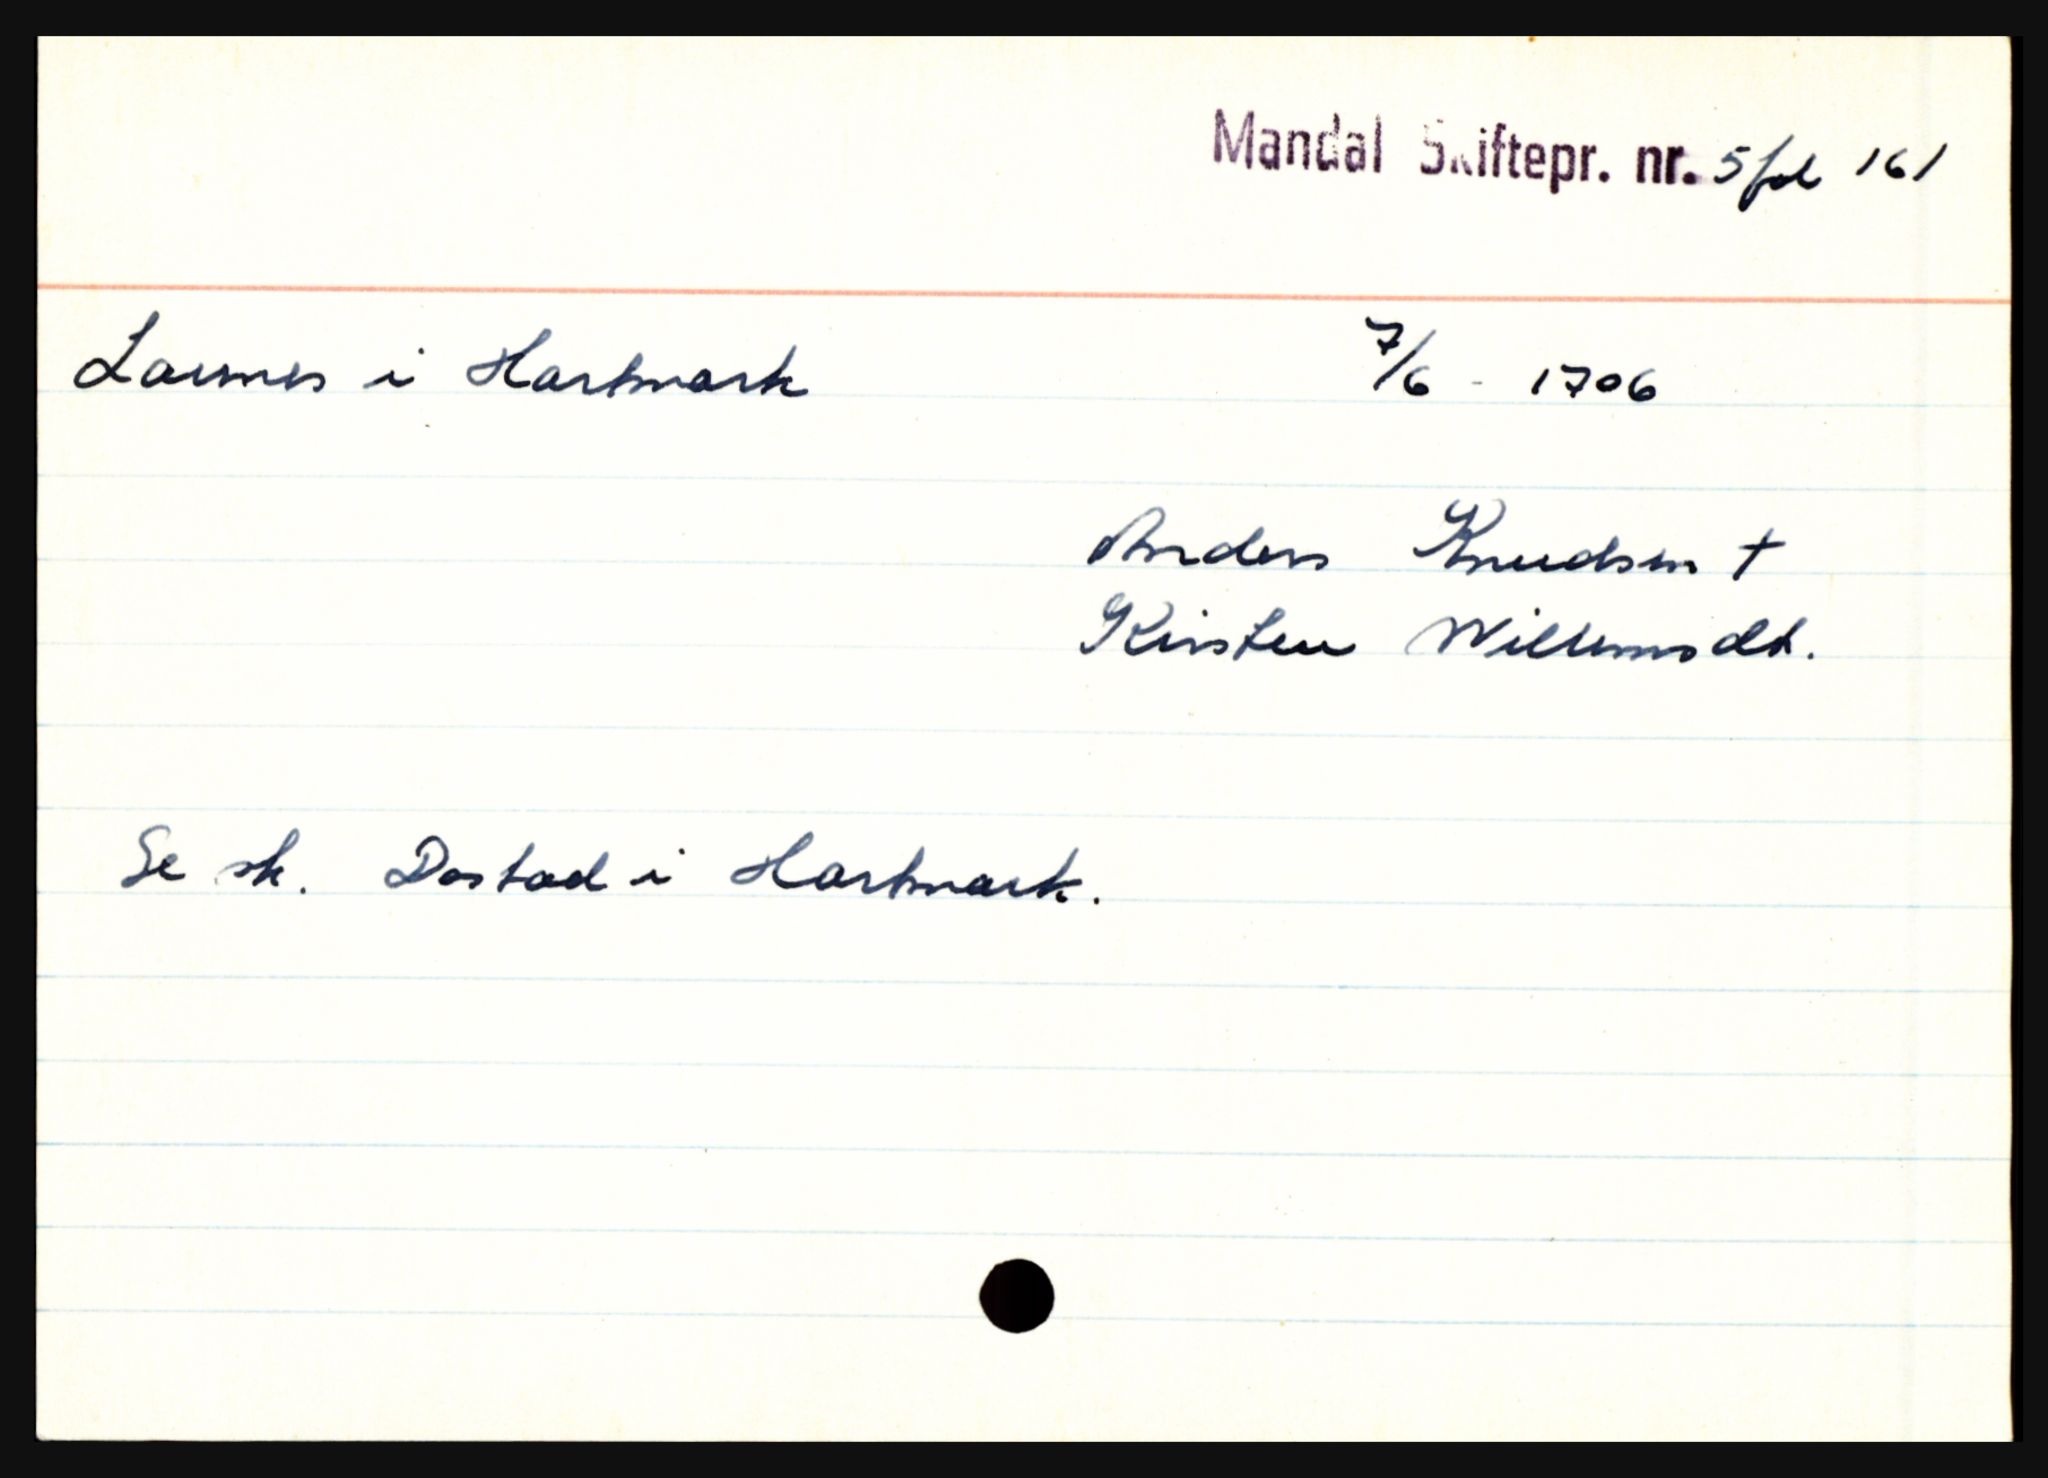 Mandal Skiftepr. nr. 5 fol 161
Laumes i Hartmark 7/6 - 1706
Anders Knudsen +
Kirsten Willumsdt.
Se sk. Dastad i Hartmark.